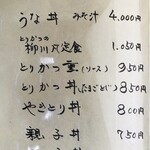 うな丼 みそ汁 4.000円
とりかつの
柳川定食 1.050円
とりかつ重(ソース) 950円
とりかつ丼(たまごとじ) 850円
やきとり丼 800円
親子丼 750円